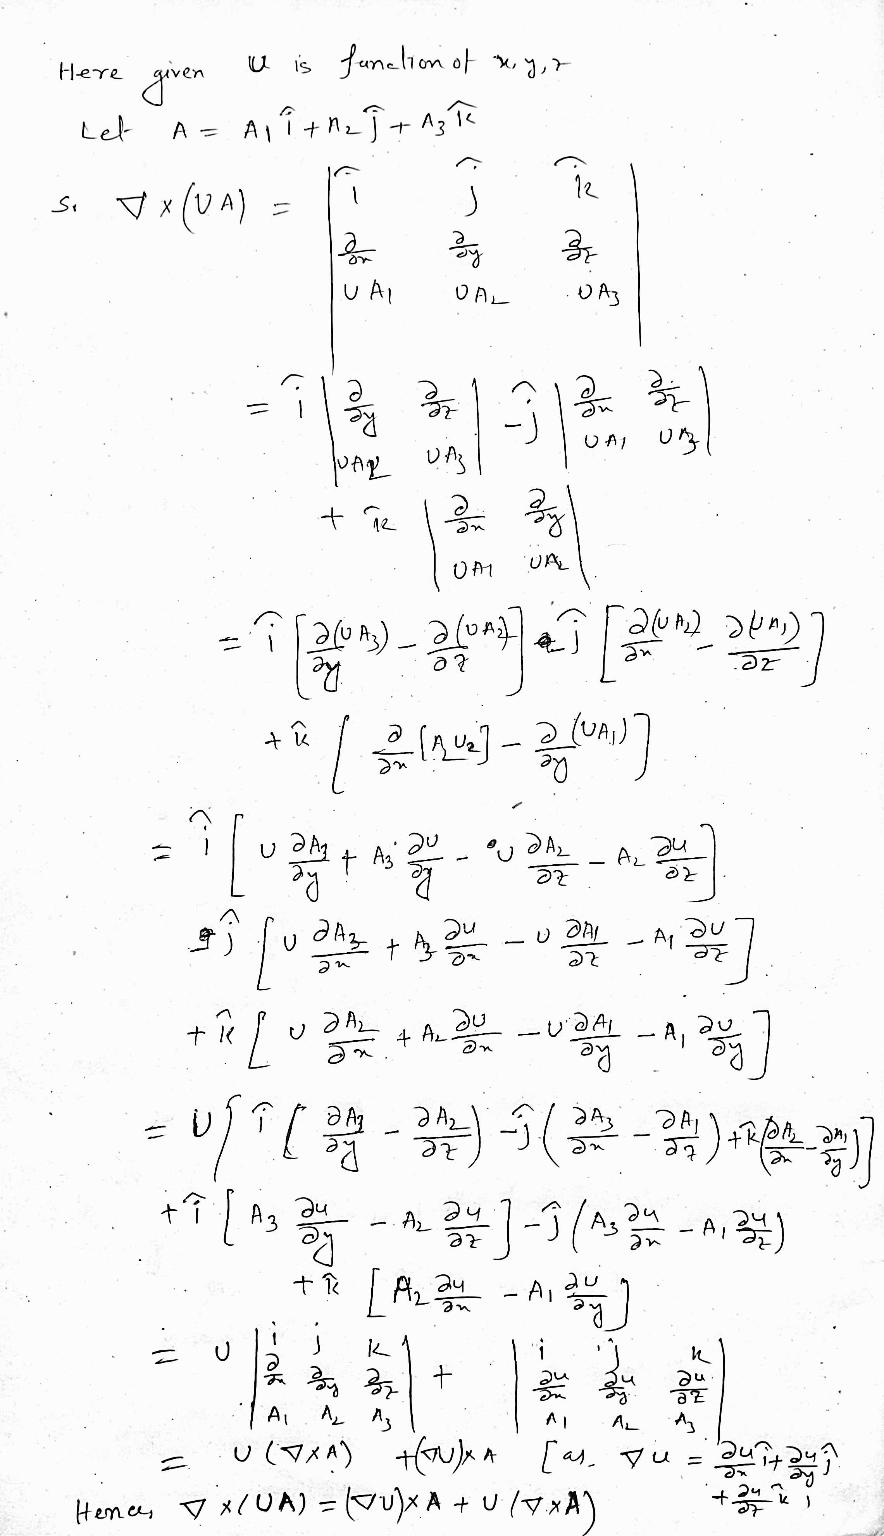 Here given U is function of x, y, z
Let A = A₁ î + A₂ ĵ + A₃ k̂
So ∇ × (UA) = | î ĵ k̂ |
| ∂/∂x ∂/∂y ∂/∂z |
| UA₁ UA₂ UA₃ |
= î | ∂/∂y ∂/∂z | - ĵ | ∂/∂x ∂/∂z |
| UA₂ UA₃ | | UA₁ UA₃ |
+ k̂ | ∂/∂x ∂/∂y |
| UA₁ UA₂ |
= î [ ∂(UA₃)/∂y - ∂(UA₂)/∂z ] - ĵ [ ∂(UA₃)/∂x - ∂(UA₁)/∂z ]
+ k̂ [ ∂/∂x [A U₂] - ∂(UA₁)/∂y ]
= î [ U ∂A₃/∂y + A₃ ∂U/∂y - U ∂A₂/∂z - A₂ ∂u/∂z ]
- ĵ [ U ∂A₃/∂x + A₃ ∂u/∂x - U ∂A₁/∂z - A₁ ∂U/∂z ]
+ k̂ [ U ∂A₂/∂x + A₂ ∂U/∂x - U ∂A₁/∂y - A₁ ∂U/∂y ]
= U { î [ ∂A₃/∂y - ∂A₂/∂z ) - ĵ ( ∂A₃/∂x - ∂A₁/∂z ) + k̂ ( ∂A₂/∂x - ∂A₁/∂y ) ]
+ î [ A₃ ∂u/∂y - A₂ ∂u/∂z ] - ĵ ( A₃ ∂u/∂x - A₁ ∂u/∂z )
+ k̂ [ A₂ ∂u/∂x - A₁ ∂U/∂y ]
= U | i j k | + | i j k |
| ∂/∂x ∂/∂y ∂/∂z | | ∂u/∂x ∂u/∂y ∂u/∂z |
| A₁ A₂ A₃ | | A₁ A₂ A₃ |
= U (∇×A) + (∇U)×A [as. ∇u = ∂u/∂x î + ∂u/∂y ĵ
+ ∂u/∂z k̂ ]
Hence, ∇ × (UA) = (∇U)×A + U (∇×A)